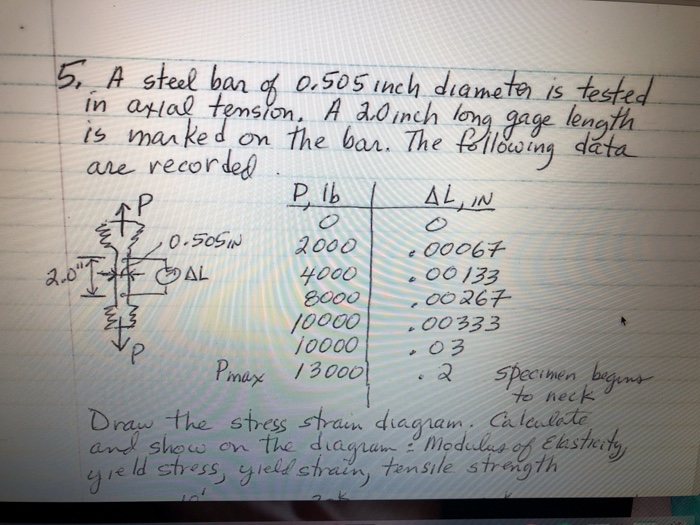 5. A steel bar of 0.505 inch diameter is tested
in axial tension. A 2.0 inch long gage length
is marked on the bar. The following data
are recorded
P, lb ΔL, IN
0 0
2000 .00067
4000 .00133
8000 .00267
10000 .00333
10000 .03
Pmax 13000 .2 specimen begins
to neck
P
0.505IN
2.0" ΔL
P
Draw the stress strain diagram. Calculate
and show on the diagram: Modulus of Elasticity,
yield stress, yield strain, tensile strength